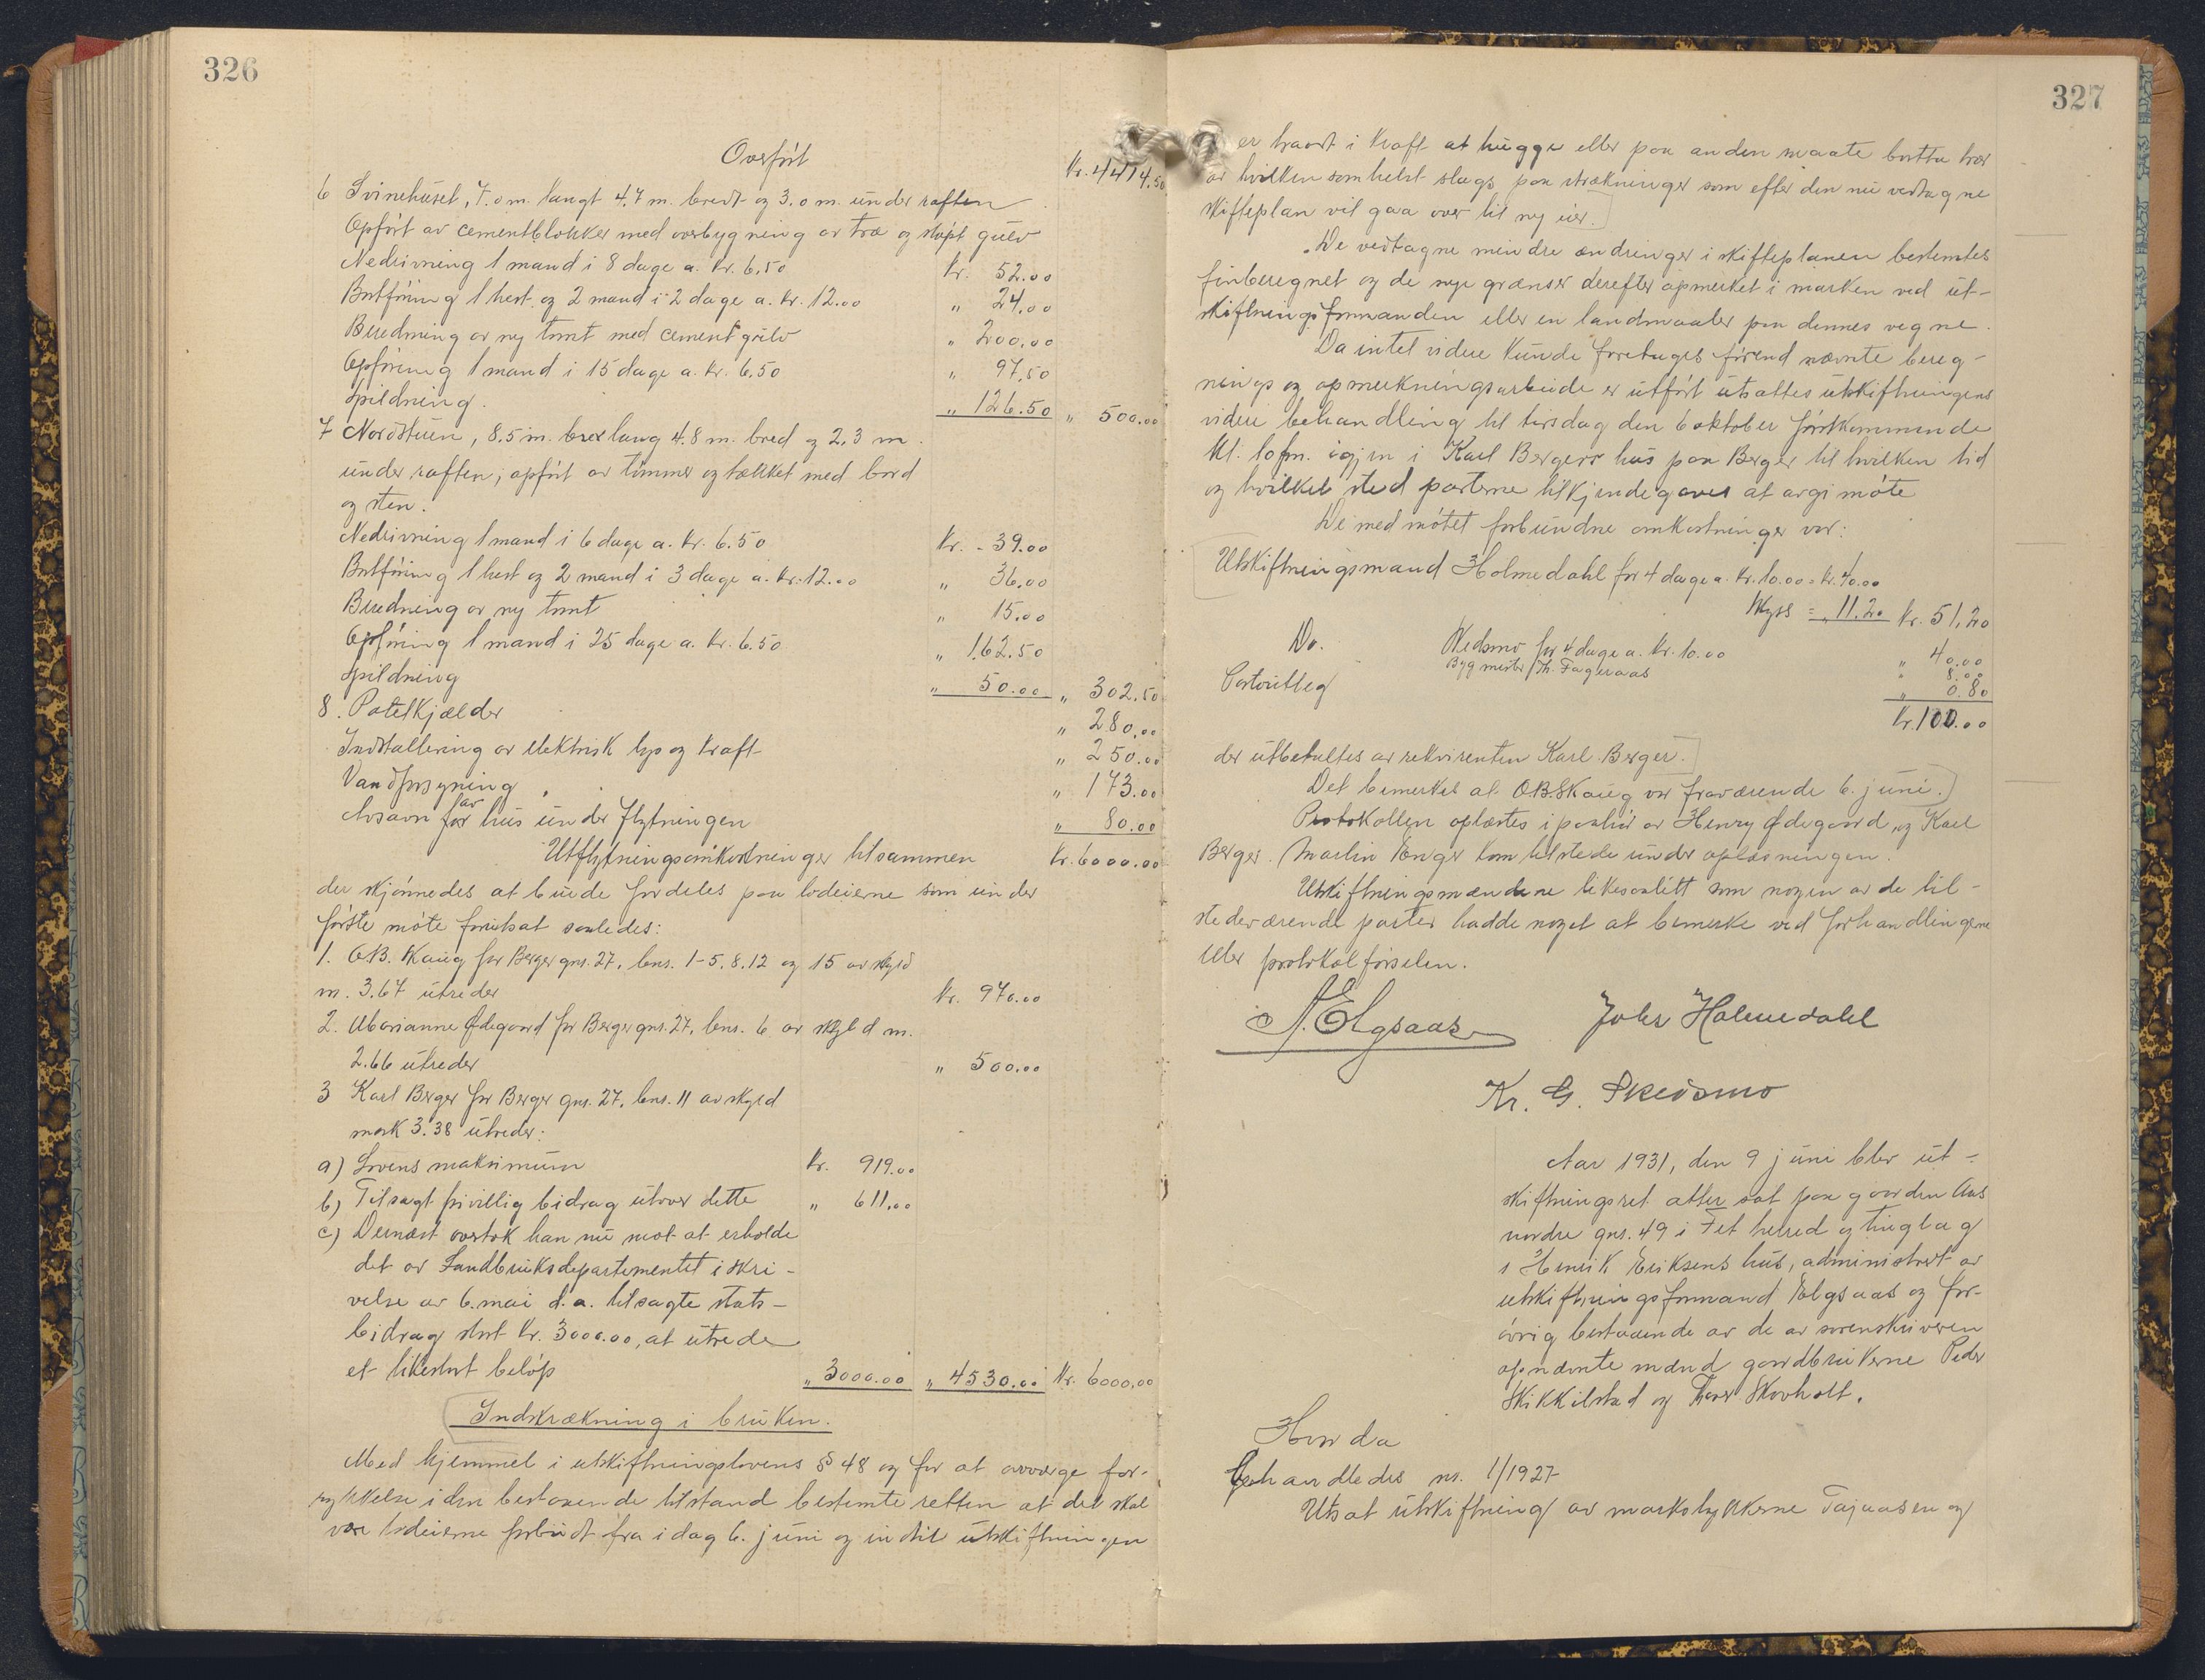 326
Overført Kr. 4414.50
6 Svinehuset, 7.0 m. langt 4.7 m. bredt og 3.0 m. under raften
Opført av cementblokker med overbygning av træ og støpt gulv
Nedrivning 1 mand i 8 dage a. kr. 6.50 Kr. 52.00
Bortføring 1 hest og 2 mand i 2 dage a. kr. 12.00 " 24.00
Beredning av ny tomt med cementgulv " 200.00
Opføring 1 mand i 15 dage a. kr. 6.50 " 97.50
Spildning. " 126.50 " 500.00
7 Nordstuen, 8.5 m. lang 4.8 m. bred og 2.3 m.
under raften, opført av tømmer og tækket med bord
og sten.
Nedrivning 1 mand i 6 dage a. kr. 6.50 Kr. 39.00
Bortføring 1 hest og 2 mand i 3 dage a. kr. 12.00 " 36.00
Beredning av ny tomt " 15.00
Opføring 1 mand i 25 dage a. kr. 6.50 " 162.50
Spildning " 50.00 " 302.50
8. Potetkjælder " 280.00
Indstallering av elektrisk lys og kraft " 250.00
Vandforsyning " 173.00
Avsavn av hus under flytningen " 80.00
Utflytningsomkostninger tilsammen Kr. 6000.00
der skjønnedes at burde fordeles paa lodeierne som under
første møte forutsat saaledes:
1. O.B. Skaug for Berger gnr. 27, bnr. 1-5, 8, 12 og 15 av skyld
m. 3.67 utreder Kr. 970.00
2. Marianne Ødegaard for Berger gnr. 27, bnr. 6 av skyld m.
2.66 utreder " 500.00
3 Karl Berger for Berger gnr. 27, bnr. 11 av skyld
mark 3.38 utreder:
a) Lovens maksimum Kr. 919.00
b) Tilsagt frivillig bidrag utover dette " 611.00
c) Dernæst overtok han nu mot at erholde
det av Landbruksdepartementet i skri-
velse av 6. mai d.a. tilsagte stats-
bidrag stort kr. 3000.00, at utrede
et likestort beløp " 3000.00 " 4530.00 Kr. 6000.00
Indskrækning i bruken.
Med hjemmel i utskiftningslovens § 48 og for at avværge for-
rykkelse i den bestaaende tilstand bestemte retten at det skal
være lodeierne forbudt fra idag 6. juni og indtil utskiftningen
327
er traadt i kraft at hugge eller paa anden maate bortta trær
av hvilken somhelst slags paa strækninger som efter den nu vedtagne
skifteplan vil gaa over til ny eier.
De vedtagne mindre ændringer i skifteplanen bestemtes
finberegnet og de nye grænser derefter opmerket i marken ved ut-
skiftningsformanden eller en landmaaler paa dennes vegne.
Da intet videre kunde foretages førend nævnte bereg-
nings og opmerkningsarbeide er utført utsattes utskiftningens
videre behandling til tirsdag den 6 oktober førstkommende
kl. 10 fm. igjen i Karl Bergers hus paa Berger til hvilken tid
og hvilket sted parterne tilkjendegaves at avgi møte
De med møtet forbundne omkostninger var:
Utskiftningsmand Holmedahl for 4 dage a. kr. 10.00 = kr. 40.00
Skyss = " 11.20 Kr. 51.20
Do. Skedsmo for 4 dage a. kr. 10.00 " 40.00
Bygmester Th. Fageraas " 8.00
Portoutleg " 0.80
Kr. 100.00
der utbetaltes av rekvirenten Karl Berger.
Det bemerkes at O.B. Skaug var fraværende 6. juni.
Protokollen oplæstes i paahør av Henry Ødegaard og Karl
Berger. Martin Enger kom tilstede under oplæsningen.
Utskiftningsmændene likesaalitt som nogen av de til-
stedeværende parter hadde noget at bemerke ved forhandlingerne
eller protokolførselen.
A. Elgsaas Johs Holmedahl
Kr. G. Skedsmo
Aar 1931, den 9 juni blev ut-
skiftningsret atter sat paa gaarden Aas
nordre gnr. 49 i Fet herred og tinglag
i Henrik Eriksens hus, administrert av
utskiftningsformand Elgsaas og for-
øvrig bestaaende av de av sorenskriveren
opnævnte mænd gaardbrukerne Peder
Skikkilstad og Thorv Skovholt.
Hvor da
behandledes nr. 1/1927
Utsat utskiftning av markstykkerne Tajeaasen og